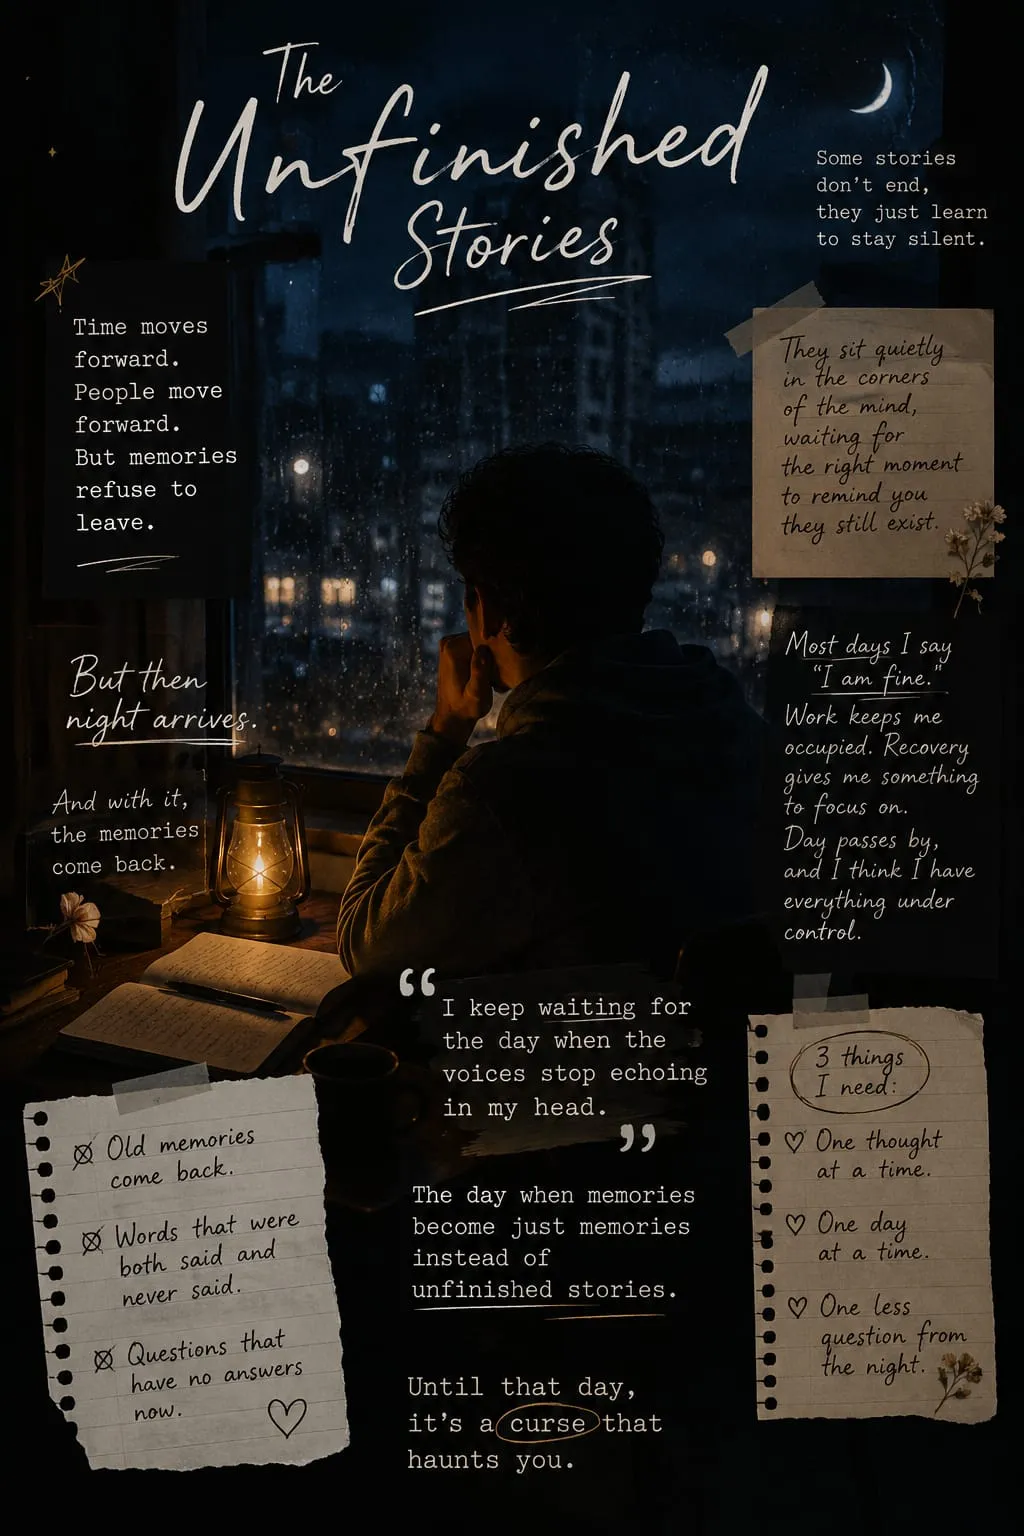 The
Unfinished
Stories
Some stories
don't end,
they just learn
to stay silent.
Time moves
forward.
People move
forward.
But memories
refuse to
leave.
They sit quietly
in the corners
of the mind,
waiting for
the right moment
to remind you
they still exist.
But then
night arrives.
And with it,
the memories
come back.
Most days I say
"I am fine."
Work keeps me
occupied. Recovery
gives me something
to focus on.
Day passes by,
and I think I have
everything under
control.
“I keep waiting for
the day when the
voices stop echoing
in my head.”
The day when memories
become just memories
instead of
unfinished stories.
Until that day,
it's a curse that
haunts you.
Old memories
come back.
Words that were
both said and
never said.
Questions that
have no answers
now.
3 things
I need:
One thought
at a time.
One day
at a time.
One less
question from
the night.